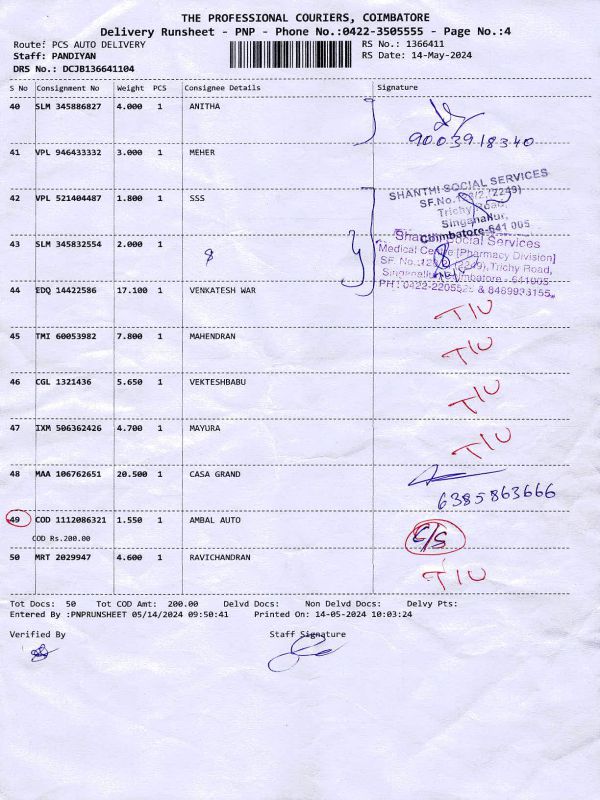 THE PROFESSIONAL COURIERS, COIMBATORE
Delivery Runsheet - PNP - Phone No.:0422-3505555 - Page No.:4
Route: PCS AUTO DELIVERY RS No.: 1366411
Staff: PANDIYAN RS Date: 14-May-2024
DRS No.: DCJB136641104
S No Consignment No Weight PCS Consignee Details Signature
40 SLM 345886827 4.000 1 ANITHA
9003918340
41 VPL 946433332 3.000 1 MEHER
SHANTHI SOCIAL SERVICES
42 VPL 521404487 1.800 1 SSS
Trichy Road,
Singanallur,
Coimbatore-641 005
43 SLM 345832554 2.000 1
Shanthi Social Services
Medical Centre [Pharmacy Division]
Trichy Road,
Singanallur, Coimbatore - 641005
& 8489933155
44 EDQ 14422586 17.100 1 VENKATESH WAR
TIU
45 TMI 60053982 7.800 1 MAHENDRAN
TIU
46 CGL 1321436 5.650 1 VEKTESHBABU
TIU
47 IXM 506362426 4.700 1 MAYURA
TIU
48 MAA 106762651 20.500 1 CASA GRAND
6385863666
49 COD 1112086321 1.550 1 AMBAL AUTO
COD Rs.200.00
50 MRT 2029947 4.600 1 RAVICHANDRAN
TIU
Tot Docs: 50 Tot COD Amt: 200.00 Delvd Docs: Non Delvd Docs: Delvy Pts:
Entered By :PNPRUNSHEET 05/14/2024 09:50:41 Printed On: 14-05-2024 10:03:24
Verified By Staff Signature